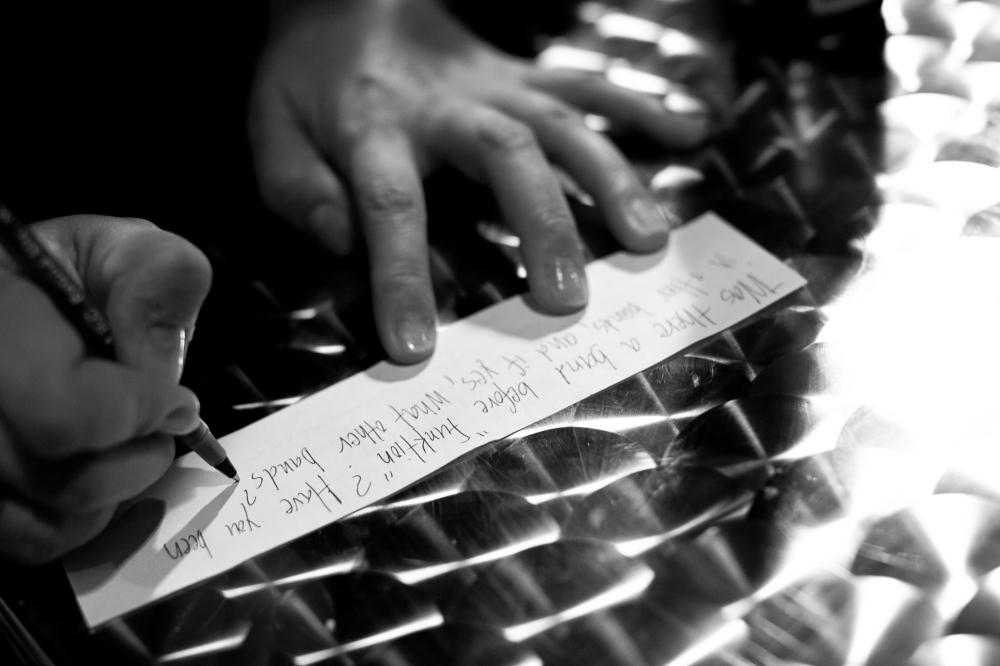 Was there a band before "Funktion"? Have you been
in other bands, and if yes, what other bands?